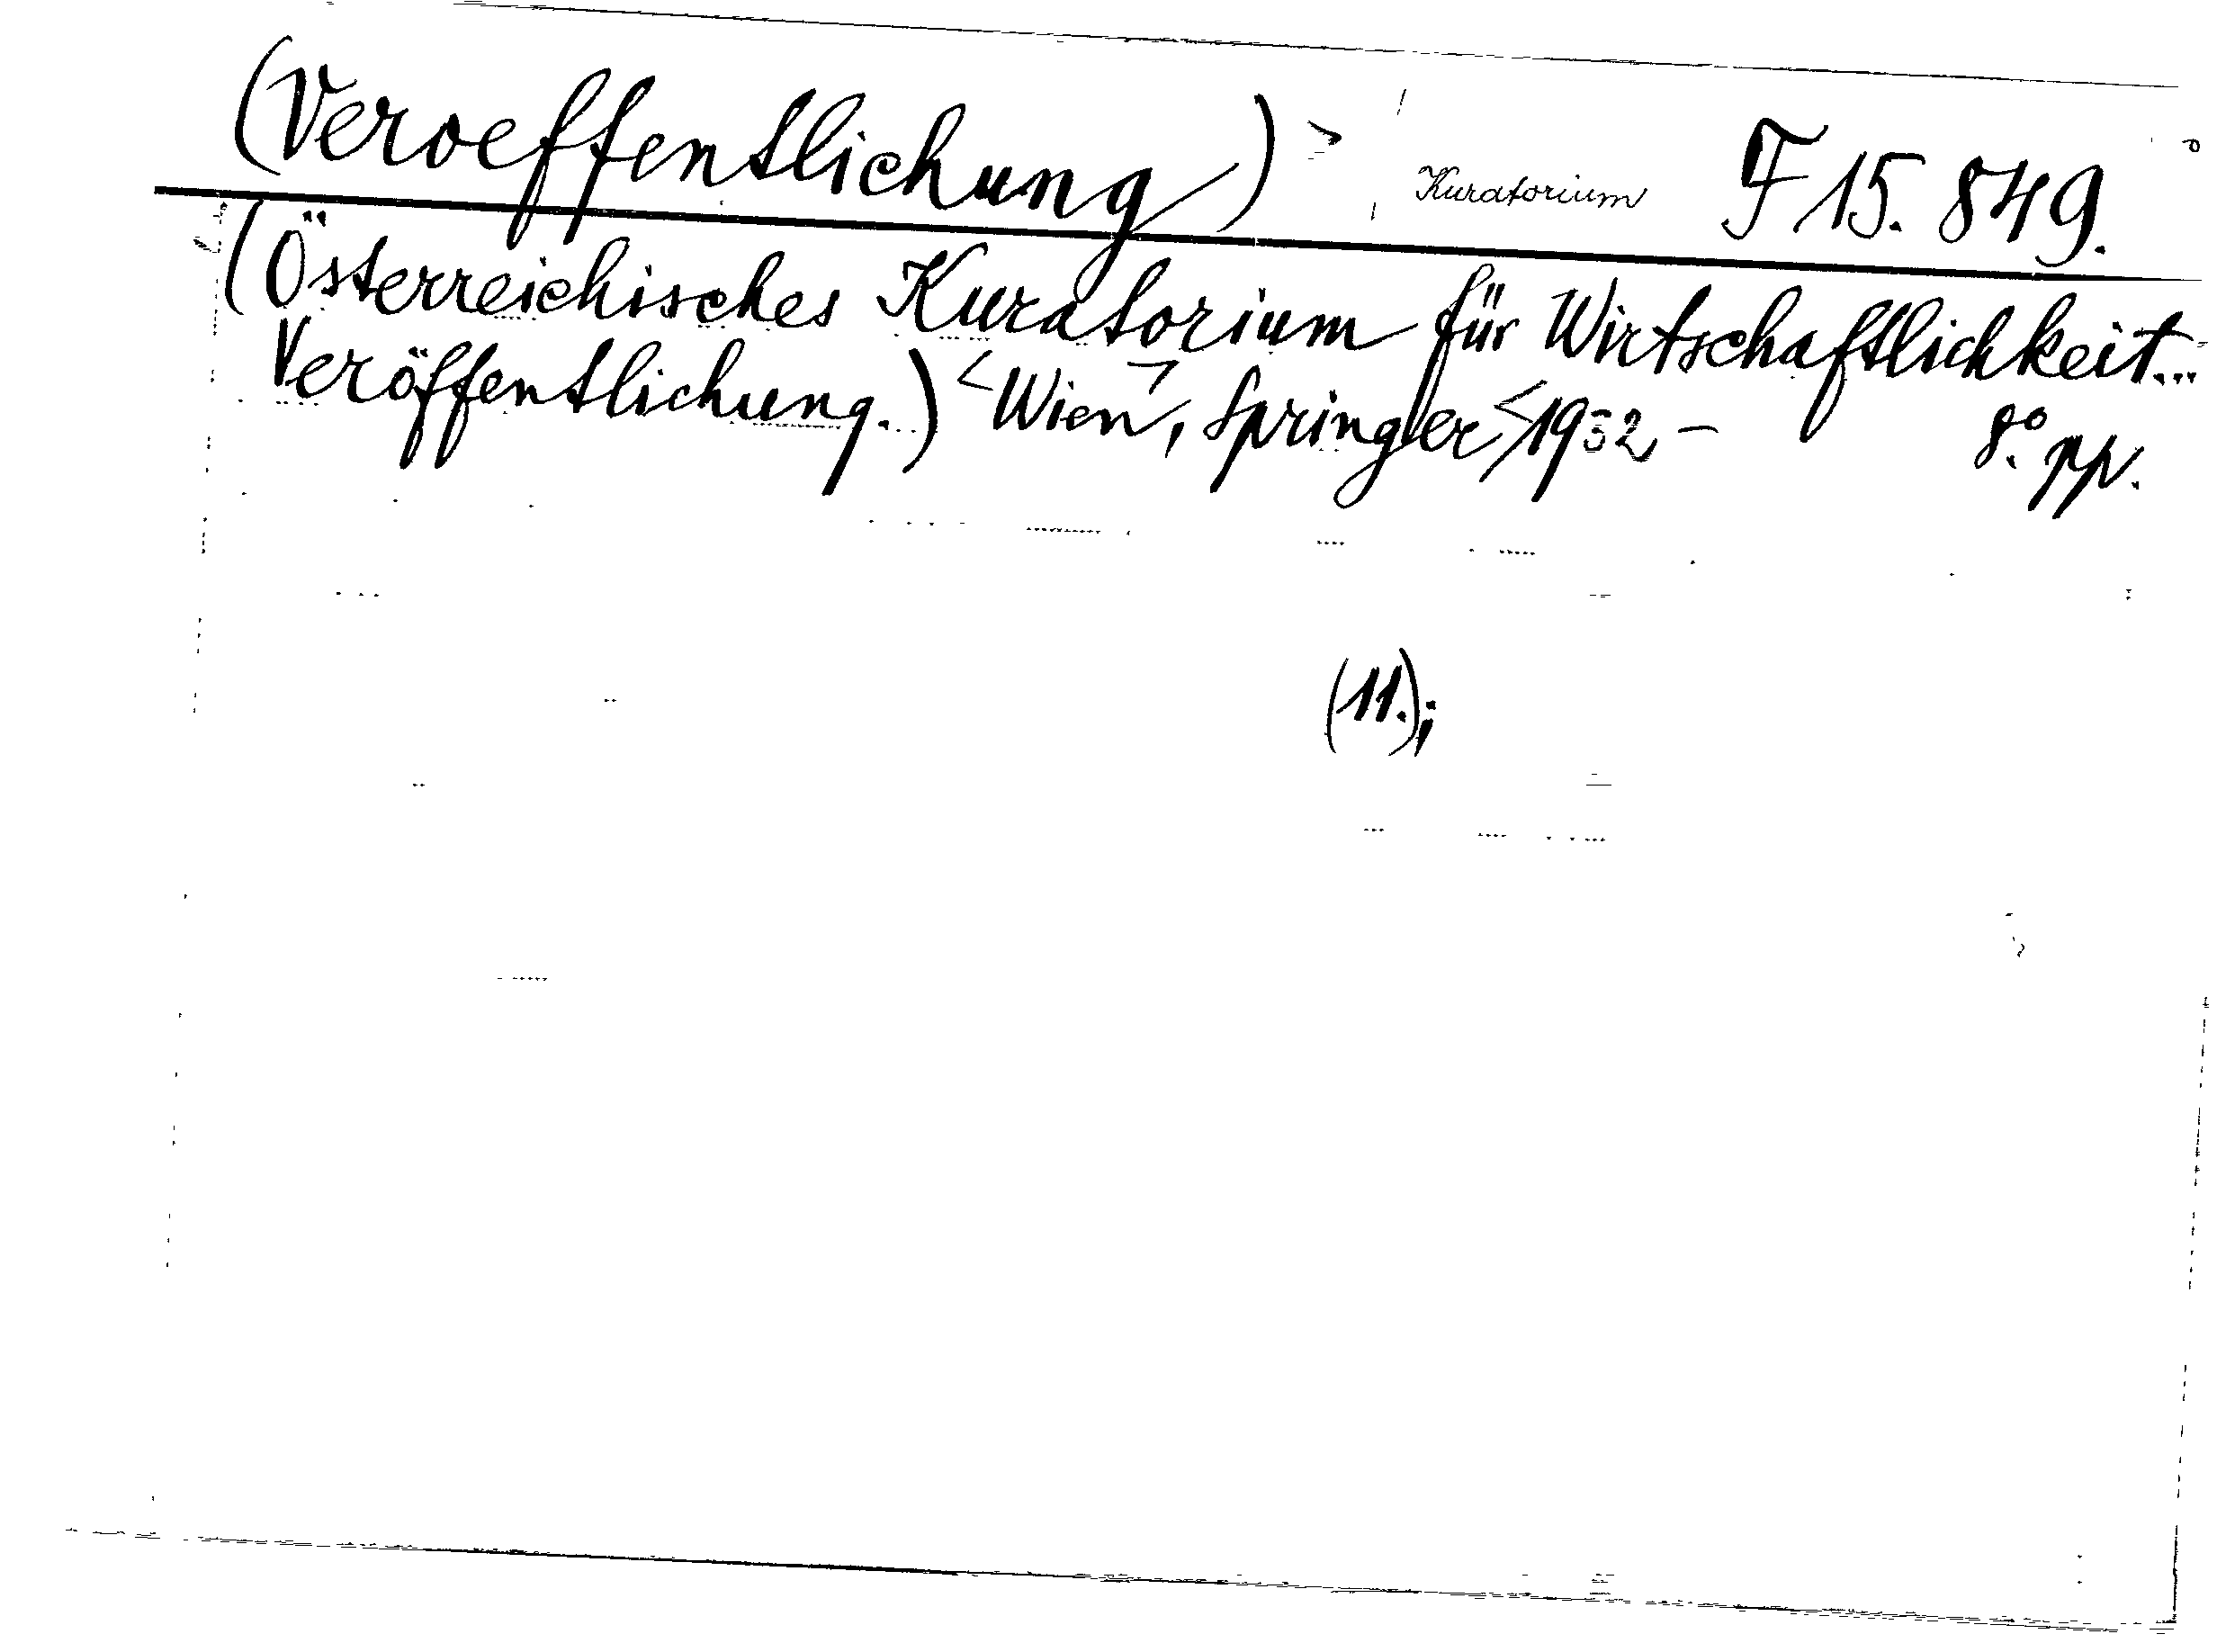 (Veroeffentlichung) Kuratorium F 15.849.
(Österreichisches Kuratorium für Wirtschaftlichkeit...
Veröffentlichung.) <Wien>, Springer <1932- 8.° pp.
(11.);